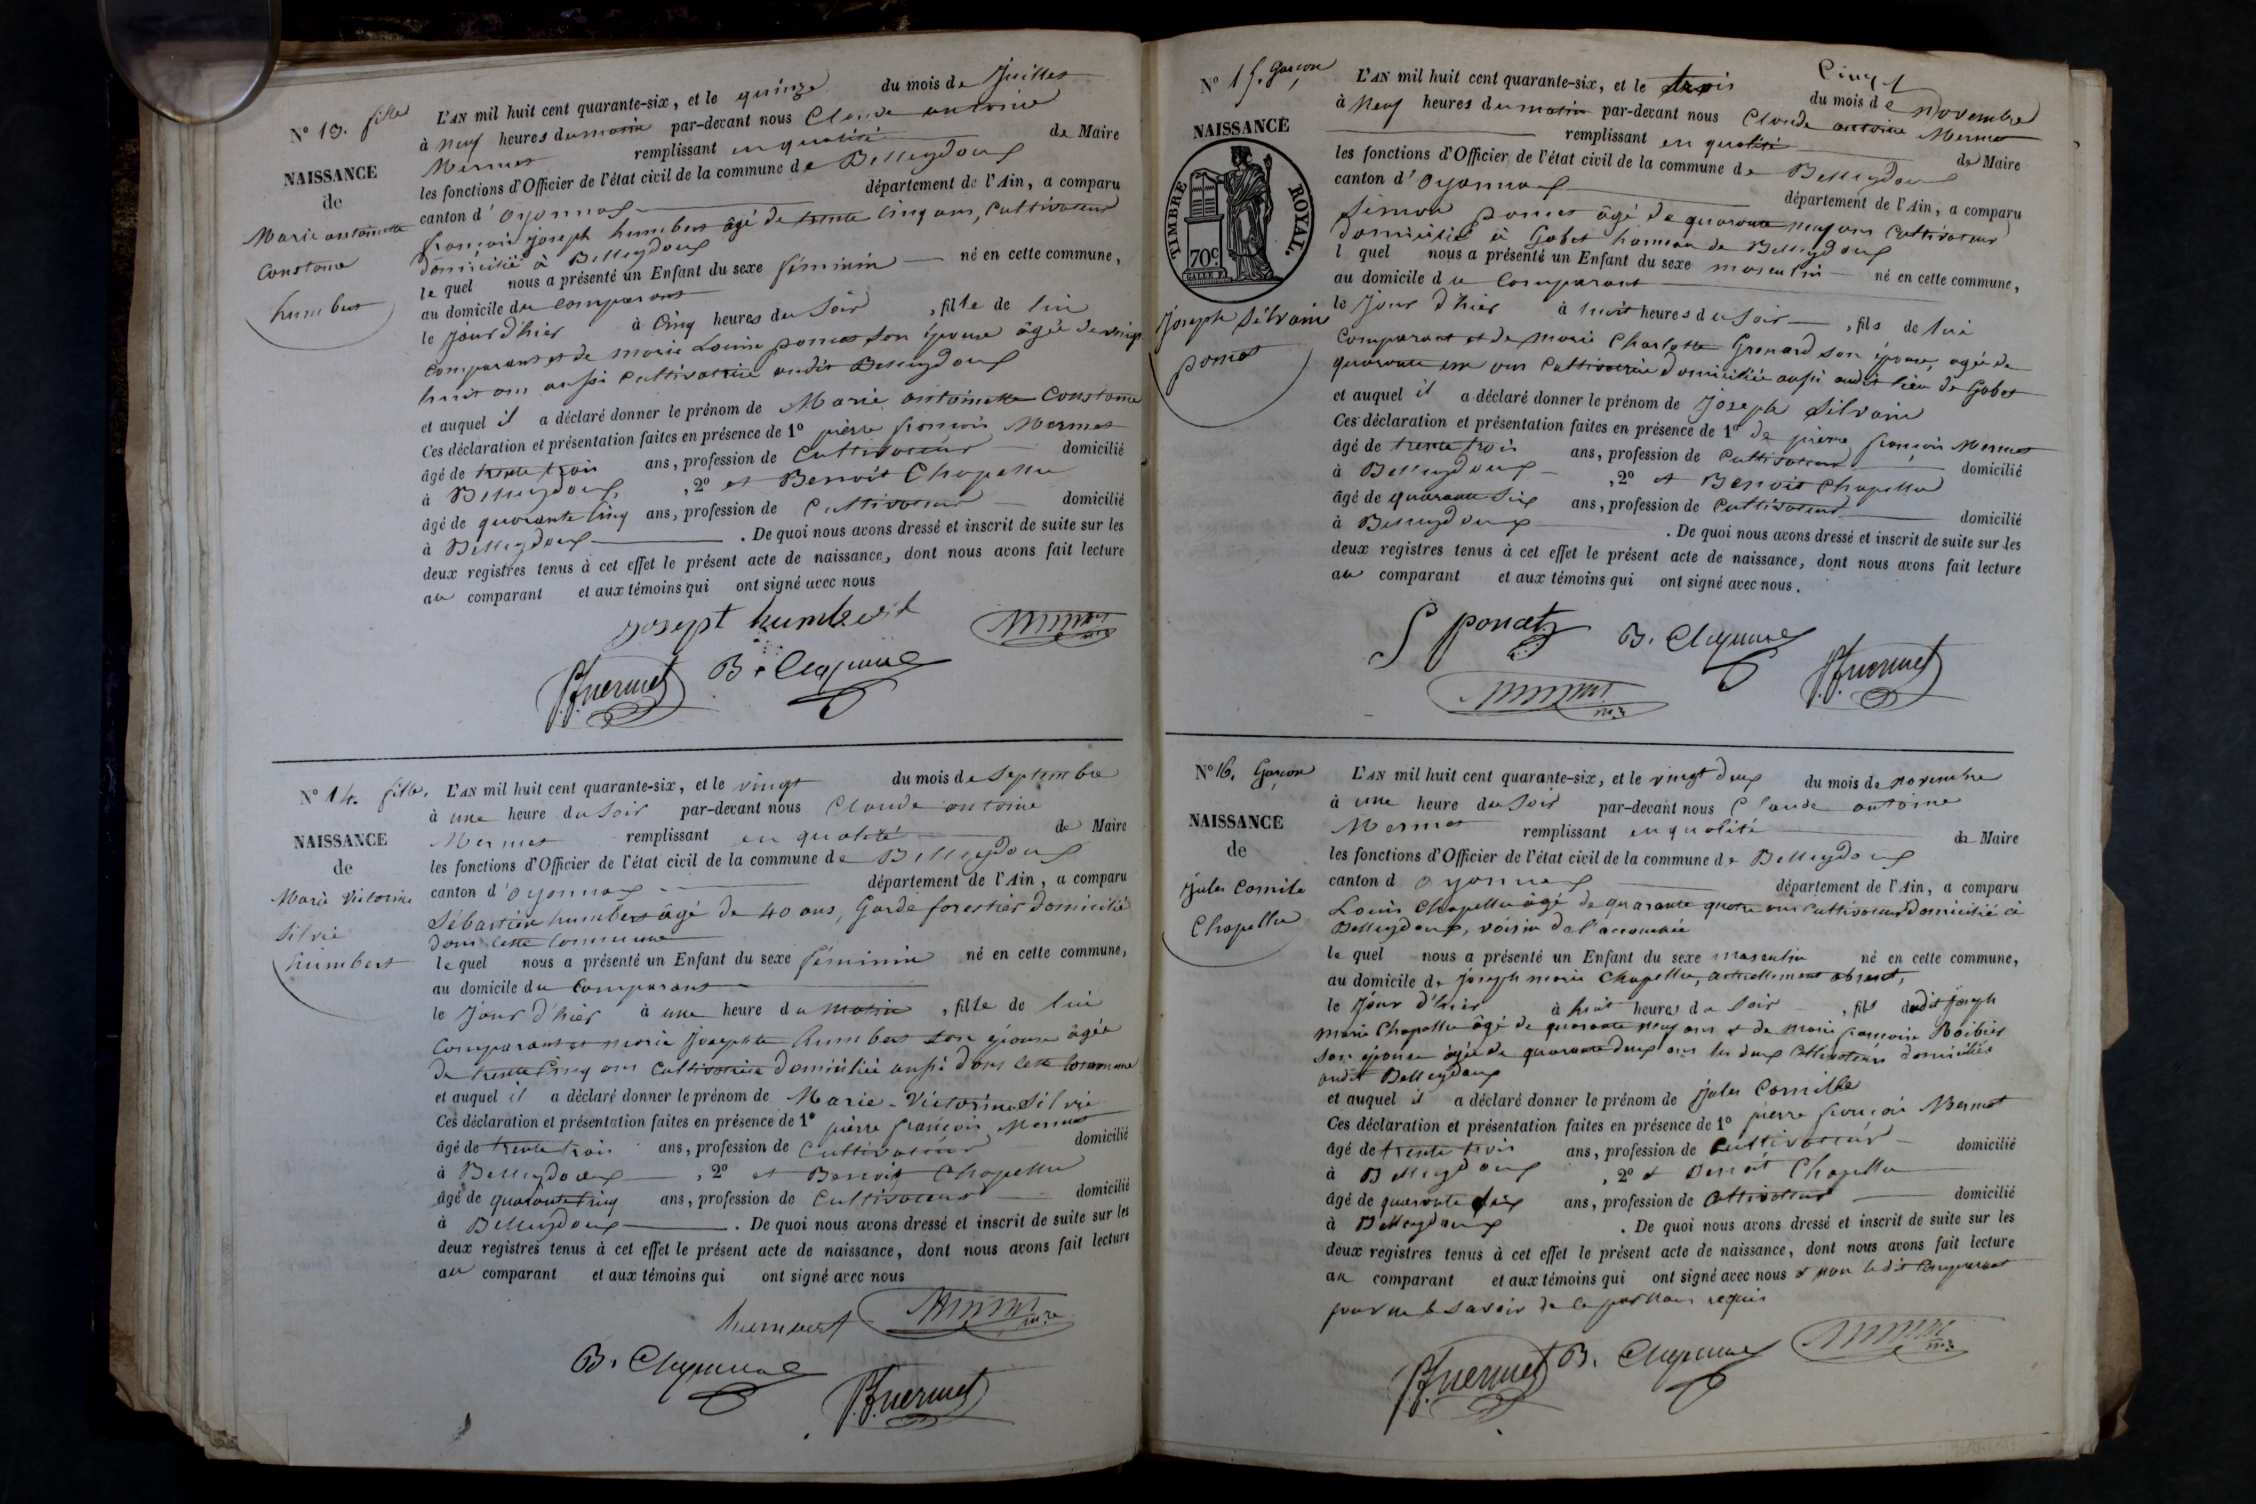 N° 13. fille
NAISSANCE
de
Marie antoinette
Constance
humbert
L'AN mil huit cent quarante-six, et le quinze du mois de Juillet
à neuf heures du matin par-devant nous Claude antoine
Mermet remplissant en qualité de Maire
les fonctions d'Officier de l'état civil de la commune de Belleydoux
canton d'oyonnax département de l'Ain, a comparu
françois joseph humbert âgé de trente Cinq ans, Cultivateur
domicilié à Belleydoux
le quel nous a présenté un Enfant du sexe féminin né en cette commune,
au domicile du comparant
le jour d'hier à Cinq heures du Soir, fille de lui
comparant et de marie Louise poncet son épouse âgée de vingt
huit ans aussi Cultivatrice audit Belleydoux
et auquel il a déclaré donner le prénom de Marie antoinette Constance
Ces déclaration et présentation faites en présence de 1° pierre françois Mermet
âgé de trente trois ans, profession de Cultivateur domicilié
à Belleydoux, 2° et Benoit Chapelle
âgé de quarante Cinq ans, profession de Cultivateur domicilié
à Belleydoux. De quoi nous avons dressé et inscrit de suite sur les
deux registres tenus à cet effet le présent acte de naissance, dont nous avons fait lecture
au comparant et aux témoins qui ont signé avec nous
N° 14. fille.
NAISSANCE
de
Marie Victorine
Silvie
humbert
L'AN mil huit cent quarante-six, et le vingt du mois de Septembre
à une heure du Soir par-devant nous Claude antoine
Mermet remplissant en qualité de Maire
les fonctions d'Officier de l'état civil de la commune de Belleydoux
canton d'oyonnax département de l'Ain, a comparu
Sébastien humbert âgé de 40 ans, Garde forestier domicilié
dans cette commune
le quel nous a présenté un Enfant du sexe féminin né en cette commune,
au domicile du Comparant
le Jour d'hier à une heure du matin, fille de lui
Comparant et marie Josephte humbert son épouse âgée
de trente Cinq ans Cultivatrice domiciliée aussi dans cette commune
et auquel il a déclaré donner le prénom de Marie-Victorine Silvie
Ces déclaration et présentation faites en présence de 1° pierre françois Mermet
âgé de trente trois ans, profession de Cultivateur domicilié
à Belleydoux, 2° et Benoit Chapelle
âgé de quarante Cinq ans, profession de Cultivateur domicilié
à Belleydoux. De quoi nous avons dressé et inscrit de suite sur les
deux registres tenus à cet effet le présent acte de naissance, dont nous avons fait lecture
au comparant et aux témoins qui ont signé avec nous
humbert
N° 15. Garçon
NAISSANCE
TIMBRE ROYAL.
70c
Joseph Silvain
poncet
L'AN mil huit cent quarante-six, et le trois du mois de Novembre
à Neuf heures du matin par-devant nous Claude antoine Mermet
remplissant en qualité de Maire
les fonctions d'Officier de l'état civil de la commune de Belleydoux
canton d'oyonnax département de l'Ain, a comparu
Simon poncet âgé de quarante neuf ans Cultivateur
domicilié à Gobet hameau de Belleydoux
l quel nous a présenté un Enfant du sexe masculin né en cette commune,
au domicile du Comparant
le Jour d'hier à huit heures du Soir, fils de lui
Comparant et de marie Charlotte Grenard son épouse, agée de
quarante un ans Cultivatrice domiciliée aussi audit lieu de Gobet
et auquel il a déclaré donner le prénom de Joseph Silvain
Ces déclaration et présentation faites en présence de 1° de pierre françois Mermet
âgé de trente trois ans, profession de Cultivateur domicilié
à Belleydoux, 2° et Benoit Chapelle
âgé de quarante Six ans, profession de Cultivateur domicilié
à Belleydoux. De quoi nous avons dressé et inscrit de suite sur les
deux registres tenus à cet effet le présent acte de naissance, dont nous avons fait lecture
au comparant et aux témoins qui ont signé avec nous.
N° 16. Garçon
NAISSANCE
de
Jules Camile
Chapelle
L'AN mil huit cent quarante-six, et le vingt deux du mois de novembre
à une heure du Soir par-devant nous Claude antoine
Mermet remplissant en qualité de Maire
les fonctions d'Officier de l'état civil de la commune de Belleydoux
canton d oyonnax département de l'Ain, a comparu
Louis Chapelle âgé de quarante quatre ans cultivateur domicilié à
Belleydoux, voisin de l'accouchée
le quel nous a présenté un Enfant du sexe masculin né en cette commune,
au domicile de Joseph marie Chapelle, actuellement absent,
le Jour d'hier à huit heures du Soir, fils dudit Joseph
marie Chapelle âgé de quarante neuf ans et de marie françoise
son épouse âgée de quarante deux ans les deux Cultivateurs domiciliés
audit Belleydoux
et auquel il a déclaré donner le prénom de Jules Camille
Ces déclaration et présentation faites en présence de 1° pierre françois Mermet
âgé de trente trois ans, profession de Cultivateur domicilié
à Belleydoux, 2° et Benoit Chapelle
âgé de quarante Six ans, profession de Cultivateur domicilié
à Belleydoux. De quoi nous avons dressé et inscrit de suite sur les
deux registres tenus à cet effet le présent acte de naissance, dont nous avons fait lecture
au comparant et aux témoins qui ont signé avec nous et non le dit Comparant
pour ne le savoir de ce par nous requis